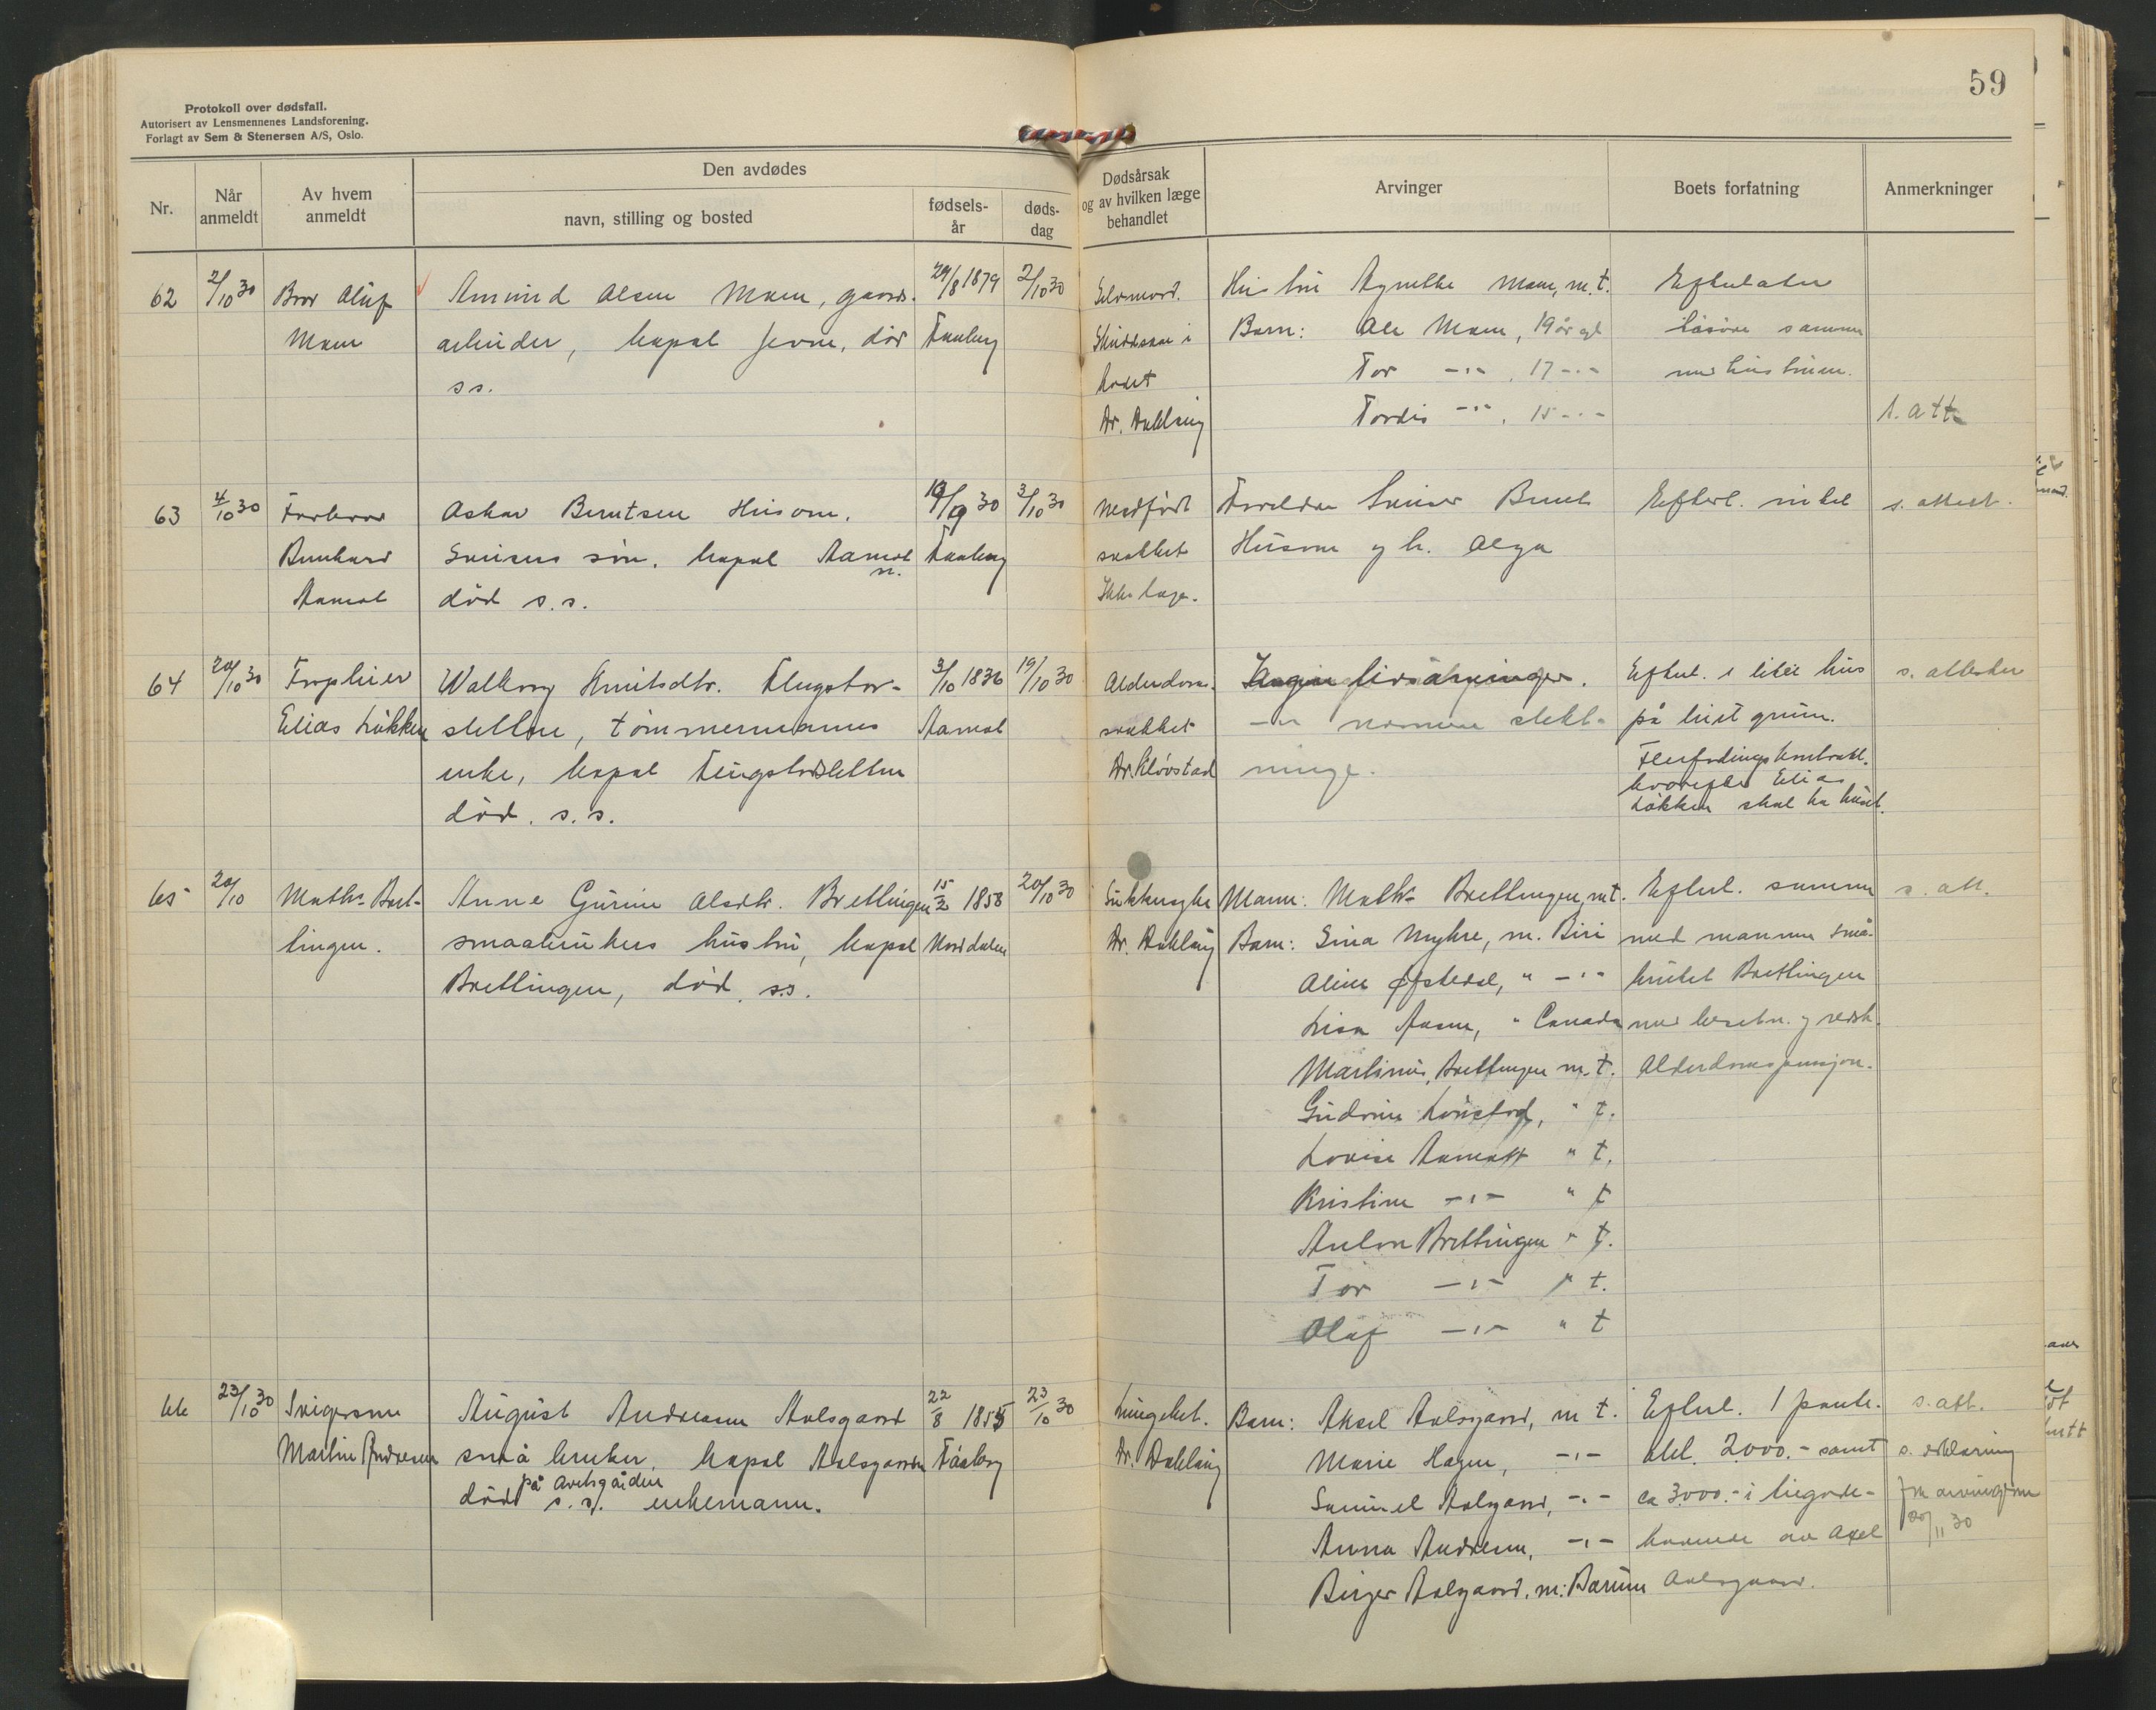 59
Protokoll over dødsfall.
Autorisert av Lensmennenes Landsforening.
Forlagt av Sem & Stenersen A/S, Oslo.
Nr.
Når anmeldt
Av hvem anmeldt
Den avdødes
navn, stilling og bosted
fødsels-år
døds-dag
Dødsårsak og av hvilken læge behandlet
Arvinger
Boets forfatning
Anmerkninger
62
2/10 30
Bror Oluf
Moen
Amund Olsen Moen, gaards-
arbeider, bopæl Jevne, død
s s.
29/8 1879
Faaberg
2/10 30
Selvmord.
Skuddsaar i
hodet
Dr. Dahlsing
Hustru Agnethe Moen, m. t.
Barn: Ole Moen, 19 år gl
Tor -"- , 17 -"-
Tordis -"- , 15 -"-
Efterlater
løsøre sammen
med hustruen.
s. att
63
4/10 30
Farbror
Bernhard
Aamot
Oskar Berntsen Husom,
sveisers søn, bopæl Aamot
n.
død s. s.
19/9 30
Faaberg
3/10 30
Medfødt
svakhet
Ikke læge.
Foreldre Sveiser Bernt
Husom og h. Olga
Efterl. intet
s. attest.
64
20/10 30
Elias Løkken
Walborg Knutsdtr. Flugstor-
sletten, tømmermanns
enke, bopæl
død. s. s.
3/10 1836
Aamot
19/10 30
Alderdoms-
svakhet
Dr. Kløvstad
Ingen livsarvinger.
-"- nærmere slekt-
ninge.
Efterl. 1 litet hus
på leiet grunn.
hvorefter Elias
Løkken skal ha huset.
s. attester
65
20/10
Maths. Bret-
tingen.
Anne Gurine Olsdtr. Brettingen
smaabrukers hustru, bopæl
Brettingen, død s.s.
15/2 1858
Norddalen
20/10 30
Sukkersyke
Dr. Dahlsing
Mann: Maths Brettingen, m t.
Barn: Sina Myhre, m. Biri
Oline Øfstedal, " -"-
Lisa Aasen, " Canada
Martinus Brettingen m. t.
Gudrun Lønstad, " t.
Lovise Aamott " t.
Kristine -"- " t
Anton Brettingen " t.
Tor -"- " t.
Oluf -"- " t
Efterl. sammen
med mannen små-
bruket Brettingen
med besetn. og redsk.
Alderdomspensjon.
s. att.
66
23/10 30
Svigersønn
Martin Andresen
August Andresen Aalsgaard
små bruker, bopæl Aalsgaarden
på Avelsgården
død s. s. enkemann.
22/8 1855
Fåaberg
23/10 30
Lungebet.
Dr. Dahlsing
Barn: Aksel Aalsgaard, m t.
Marie Hagen, -"-
Samuel Aalsgaard, -"-
Anna Andresen, -"-
Birger Aalsgaard, m: Bærum
Efterl. 1 pante-
obl. 2000.- samt
ca 3000.- i tilgode-
havende av Axel
Aalsgaard.
s. att.
s. erklæring
fra arvingerne
20/11 30